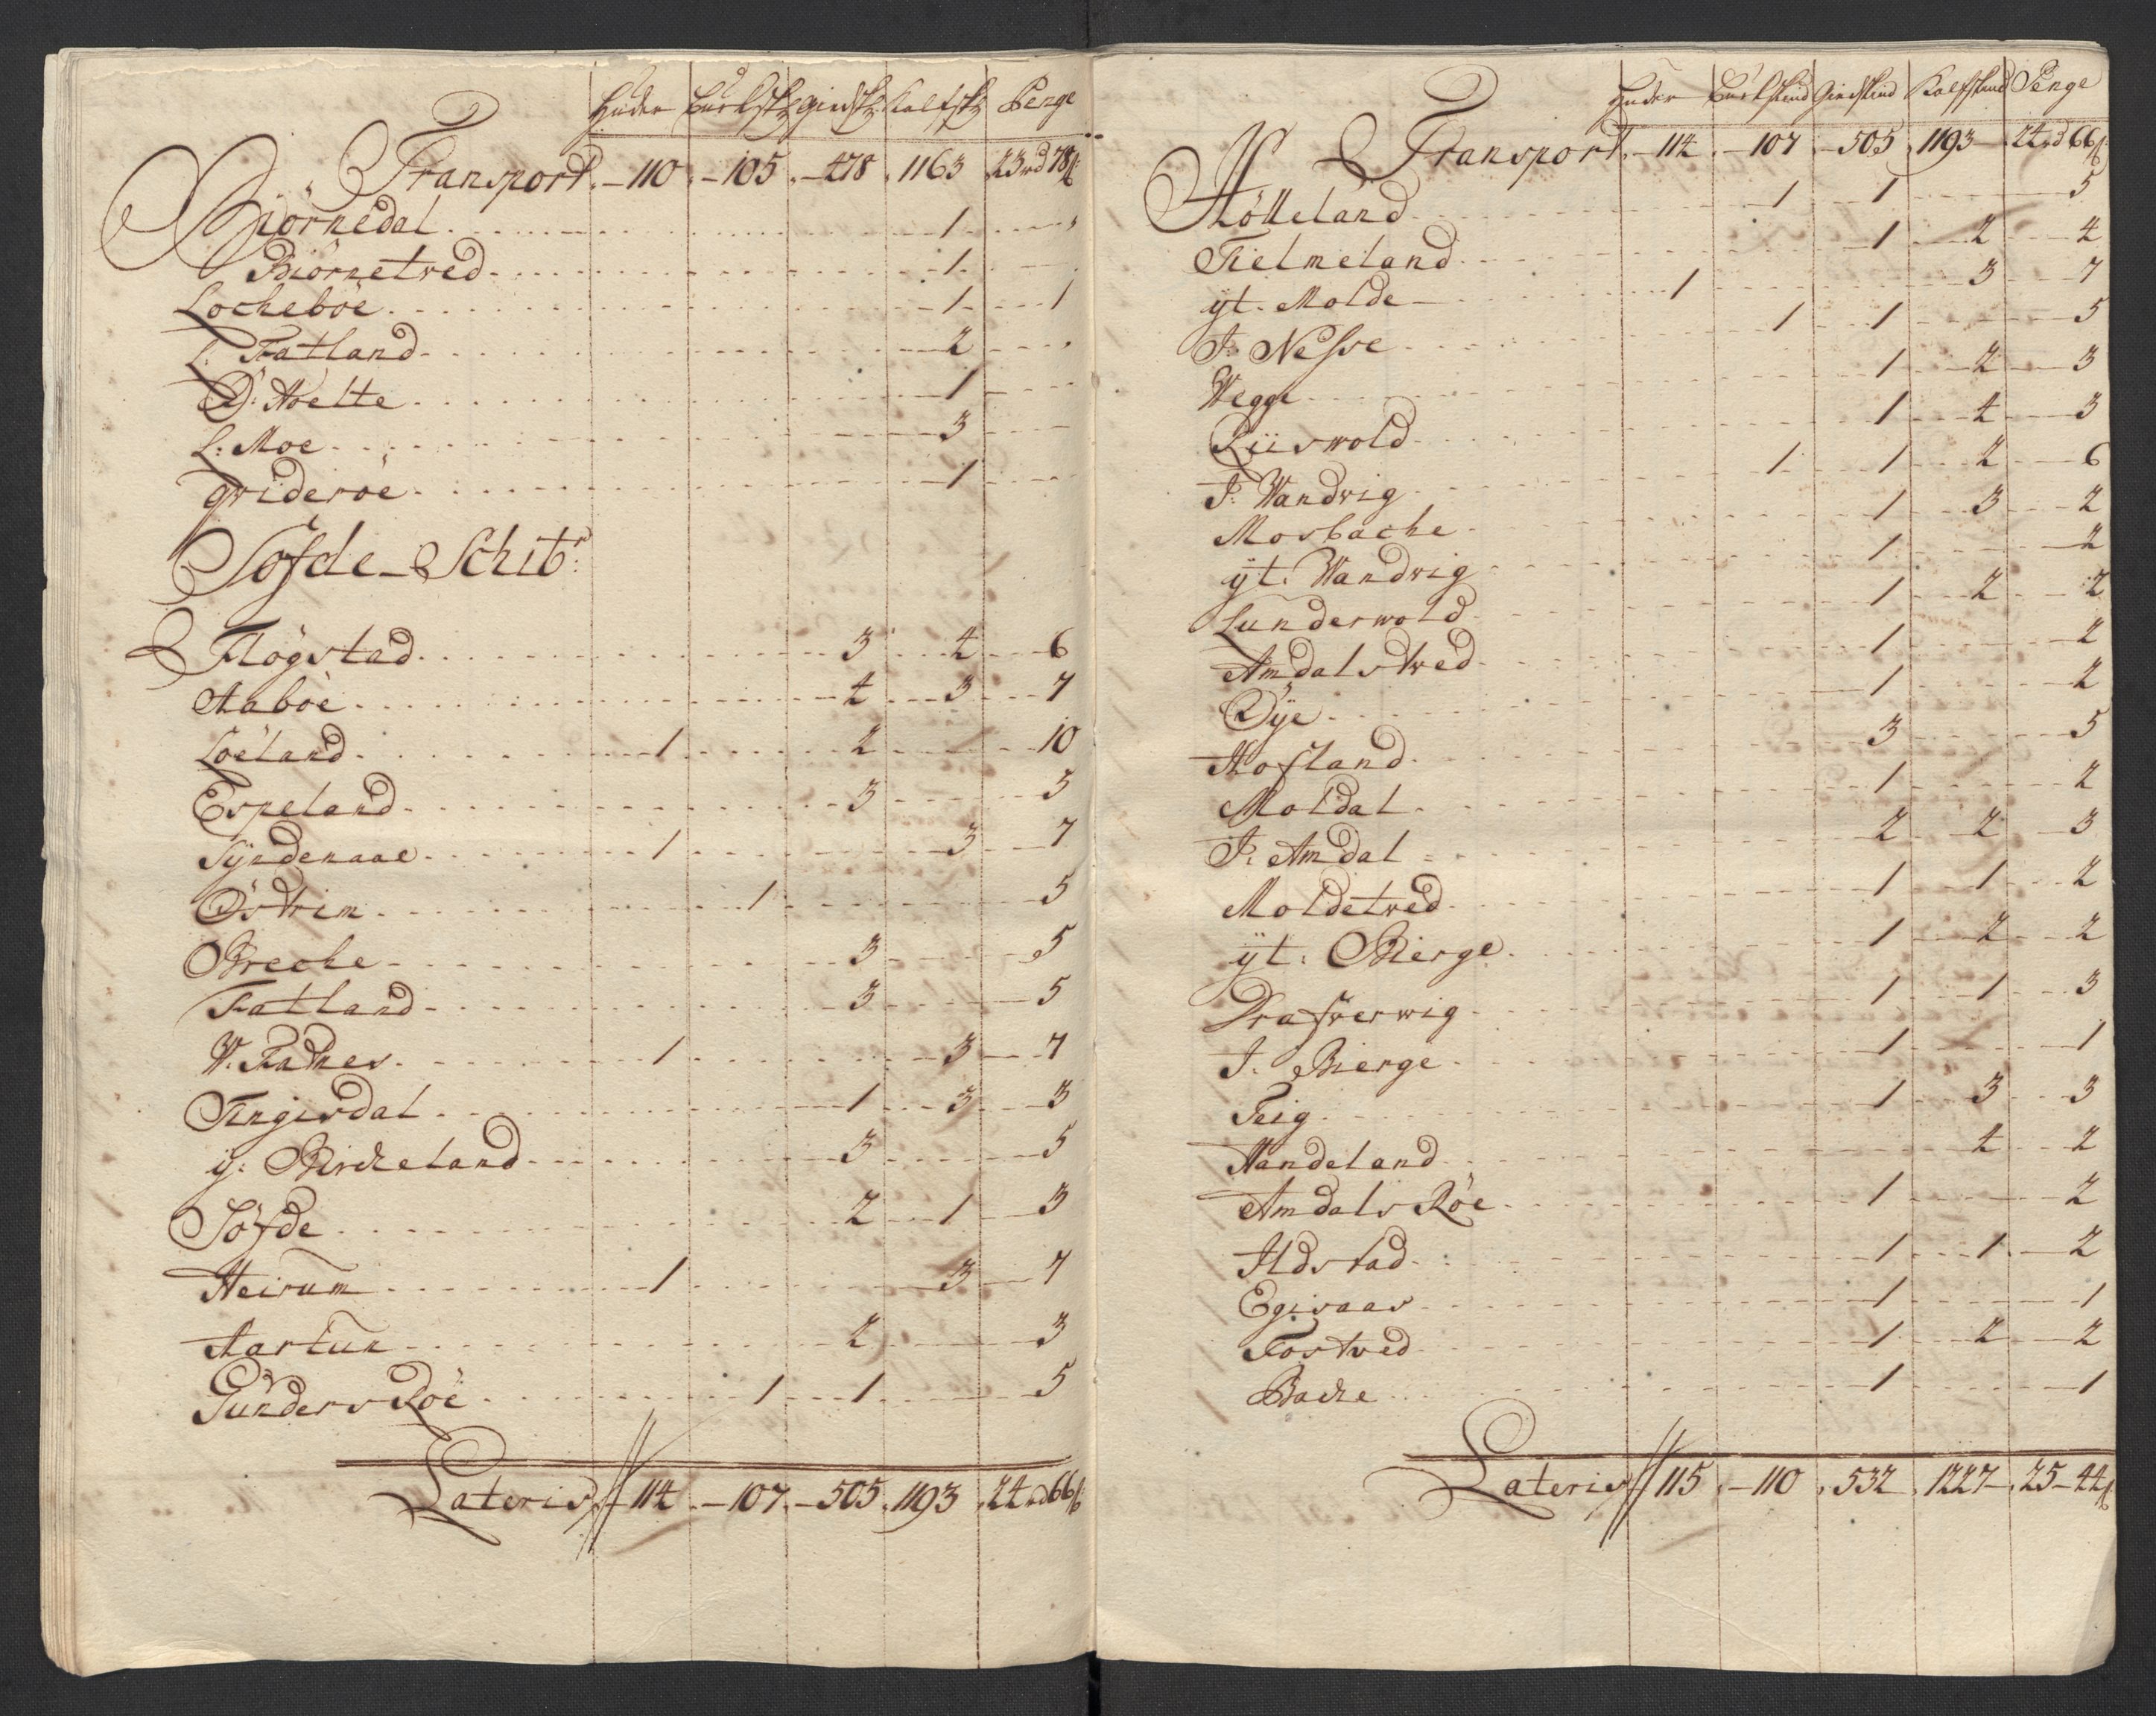 Huder Buckskz giedskz Kalfskz Penge
Transport. - 110. - 105. - 478. 1163. 23rd 78ß
Biörnedal 1
Biörnetved 1
Locheböe 1 1
L. Fatland 2
D: Hoelte 1
L: Moe 3
qvideröe 1
Söfde - Schibr:
Fløgstad 3 4 6
Aaböe 4 3 7
Loeland 1 2 10
Espeland 3 5
Syndenaae 1 3 7
Östrim 1 5
Breche 3 5
Fatland 3 5
W. Fatnes 1 3 7
Tingisdal 1 3 3
y: Bircheland 3 5
Söfde 2 1 3
Heirum 1 3 7
Aartun 2 3
Gunders Röe 1 1 5
Lateris - 114. - 107. - 505. 1193. 24rd 66ß
Huder Buckskind Giedskind Kalfskind Penge
Transport. - 114. - 107. - 505. 1193 - 24rd 66ß
Hölleland 1 1 5
Tielmeland 1 2 4
yt. Molde 1 3 7
I: Nesse 1 1 5
Wegge 1 2 3
Liiswold 1 4 3
I: Wandvig 1 1 2 6
Mosbache 1 3 2
yt. Wandvig 1 2
Lunderwold 1 2 2
Amdalstved 1 2
Öye 1 2
Hofland 3 5
Moldal 1 2
I: Amdal 2 2 3
Moldetved 1 1 2
yt: Bierge 1 2 2
Drafwerwig 1 1 3
I. Bierge 1 1
Teig 1 3 3
Handeland 4 2
Amdals Röe 1 2
Ildstad 1 1 2
Egisaas 1 1
Fostved 1 2 2
Bache 1 1
Lateris 115. - 110. 532. 1227 - 25 - 44ß